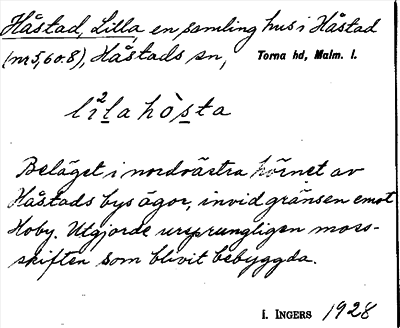 Håstad, Lilla, en samling hus i Håstad
(nr 5, 6 o. 8), Håstads sn, Torna hd, Malm. l.
lı²la hò̀sta
Beläget i nordvästra hörnet av
Håstads bys ägor, invid gränsen emot
Hoby. Utgjorde ursprungligen moss-
skiften som blivit bebyggda.
I. INGERS 1928